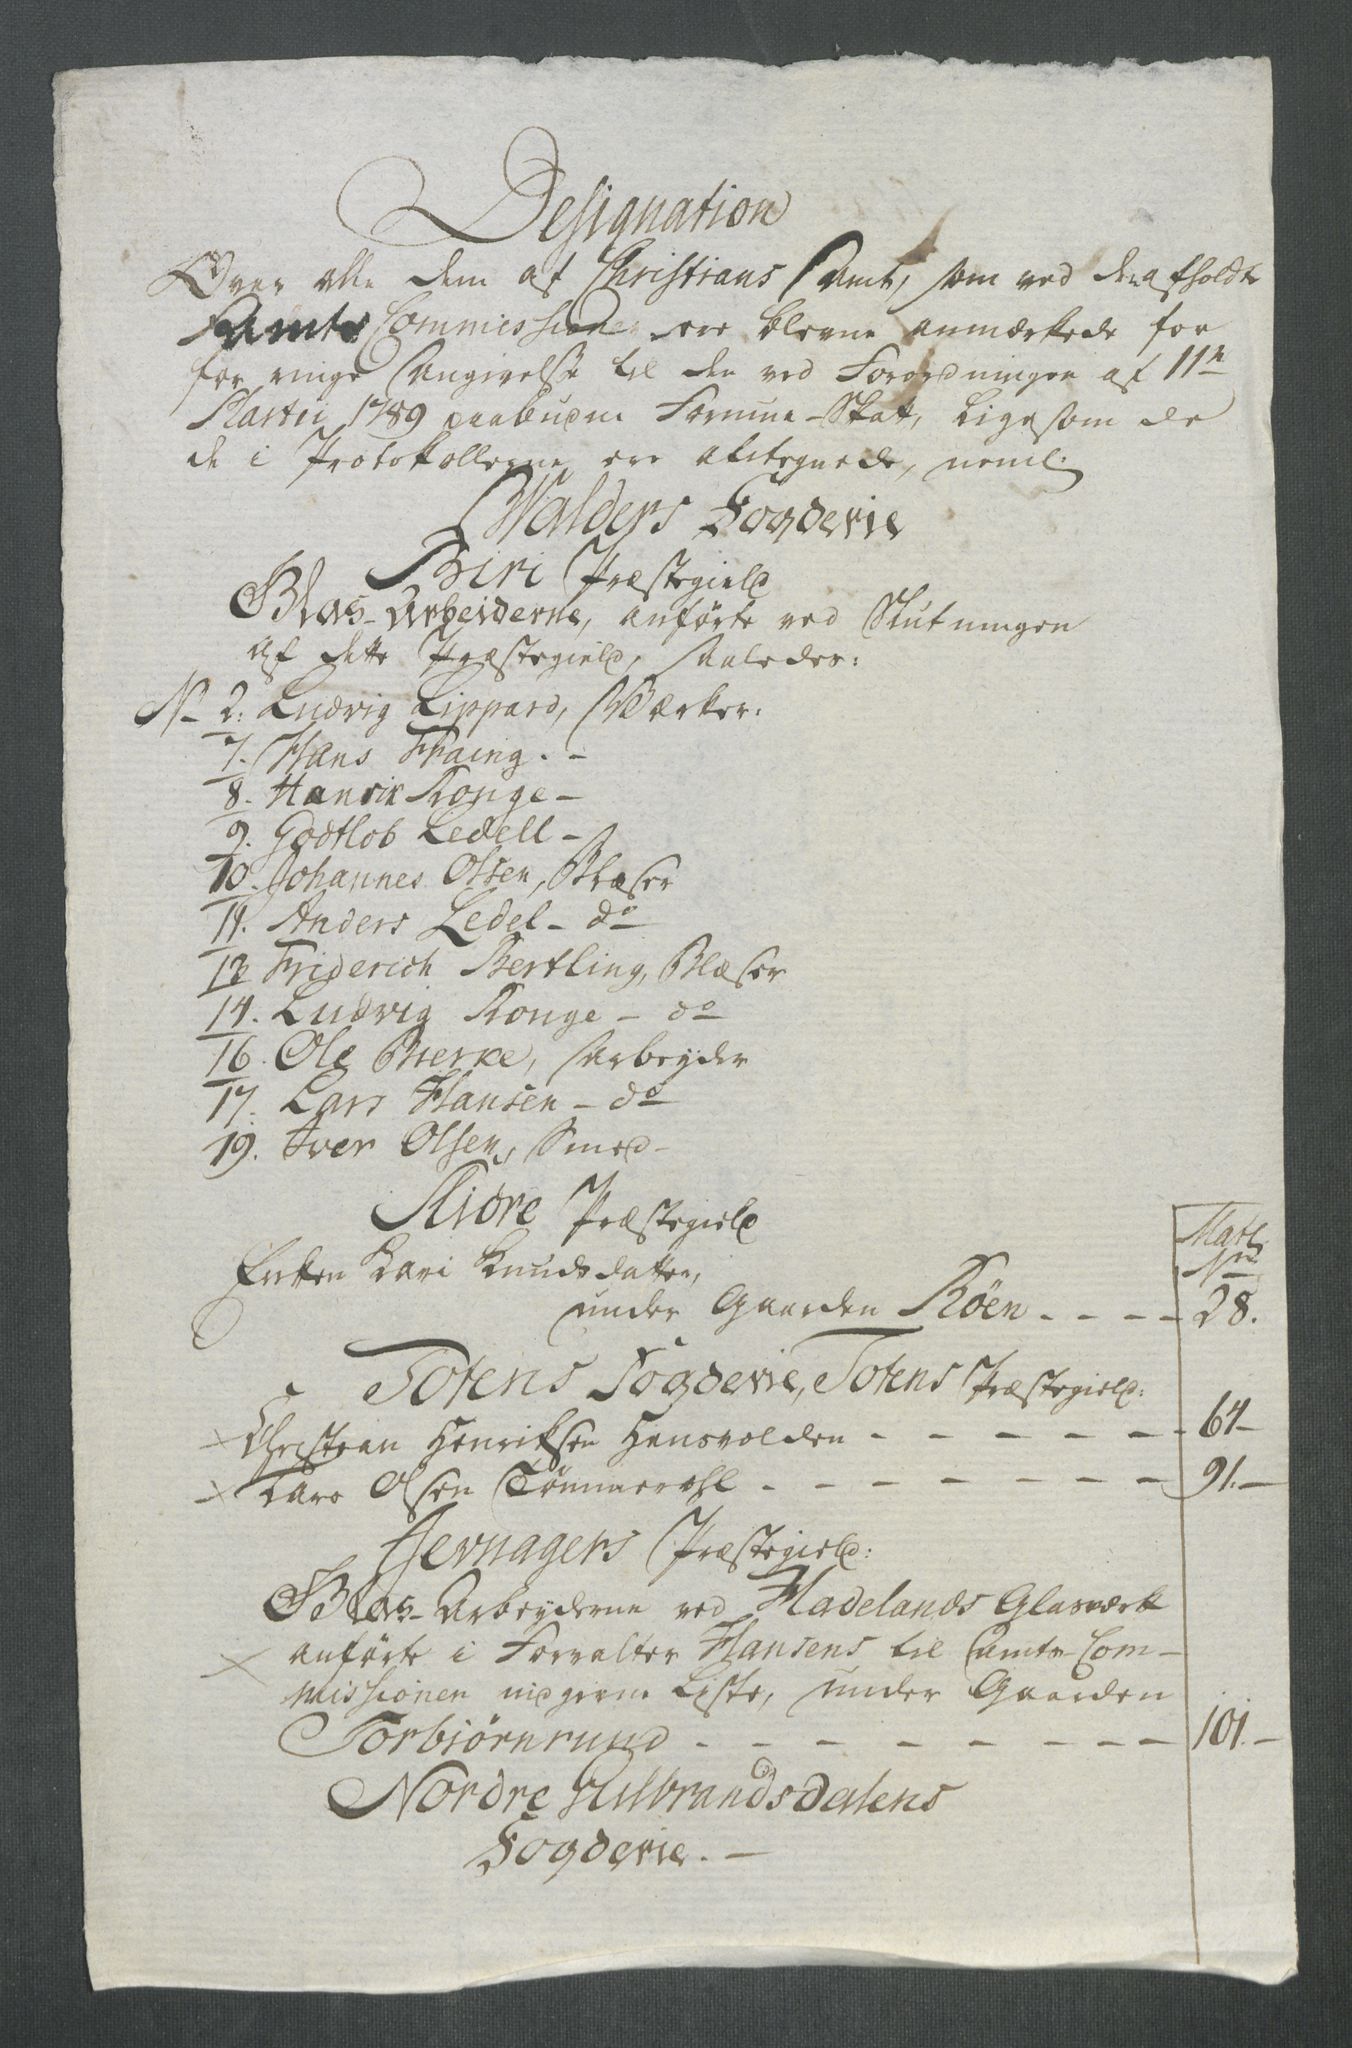 Designation
Over alle dem af Christians Amt, som ved den afholdte
Amts Commissione ere blevne anmærkede for
for ringe Angivelse til den ved Forordningen af 11te
Martii 1789 paabudne Formue-Skat, ligesom de
de i Protokollerne ere antegnede, neml:
Walders Fogderie
Biri Præstegield
Glas-Arbeiderne, anførte ved Slutningen
af dette Præstegield, saaledes:
No 2: Ludvig Lippard, Værker:
7. Hans Fraing. -
8. Henrik Ronge -
9. Godtlob Ledell -
10. Johannes Olsen, Blæser
11. Anders Ledel - do
13 Friderich Bertling, Blæser
14. Ludvig Ronge - do
16. Ole Bierke, Arbeyder
17. Lars Hansen - do
19. Iver Olsen, Smed -
Slidre Præstegield
Matr.
No
Enken Kari Knudsdatter,
under Gaarden Röen - - - - 28.
Totens Fogderie, Totens Præstegield:
Christian Henriksen Hansvolden - - - - - - 64 -
Lars Olsen Tømmerhol - - - - - - - 91. -
Jevnagers Præstegield:
Glas-Arbeyderne ved Hadelands Glasværk
anførte i Forvalter Hansens til Amts-Com-
missionen indgivne Liste, under Gaarden
Torbiörnrund - - - - - - - - 101. -
Nordre Gulbrandsdalens
Fogderie. -